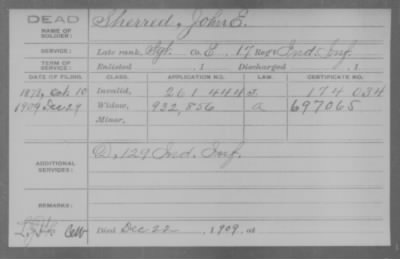 DEAD
NAME OF SOLDIER: Sherred, John E.
SERVICE: Late rank, Sgt. Co. E, 17 Reg't Ind. Inf.
TERM OF SERVICE: Enlisted , 1 Discharged , 1
DATE OF FILING. CLASS. APPLICATION NO. LAW. CERTIFICATE NO.
1878, Oct. 10 Invalid, 261 444 174 034
1909 Dec 29 Widow, 932,856 a 697065
Minor,
ADDITIONAL SERVICES: D, 129 Ind. Inf.
REMARKS:
Died Dec 22, 1909, at